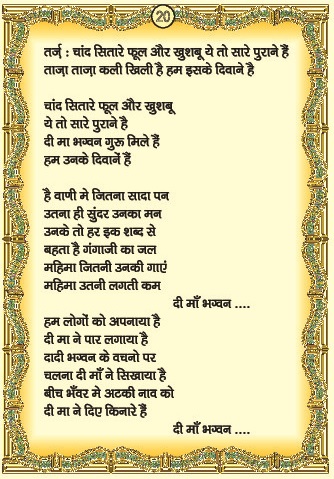 20
तर्ज़ : चांद सितारे फूल और खुशबू ये तो सारे पुराने हैं
ताज़ा ताज़ा कली खिली है हम इसके दिवाने है
चांद सितारे फूल और खुशबू
ये तो सारे पुराने है
दी मा भगवन गुरु मिले हैं
हम उनके दिवानें हैं
है वाणी मे जितना सादा पन
उतना ही सुंदर उनका मन
उनके तो हर इक शब्द से
बहता है गंगाजी का जल
महिमा जितनी उनकी गाएं
महिमा उतनी लगती कम
दी माँ भगवन ....
हम लोगों को अपनाया है
दी मा ने पार लगाया है
दादी भगवन के वचनो पर
चलना दी माँ ने सिखाया है
बीच भँवर मे अटकी नाव को
दी मा ने दिए किनारे हैं
दी माँ भगवन ....